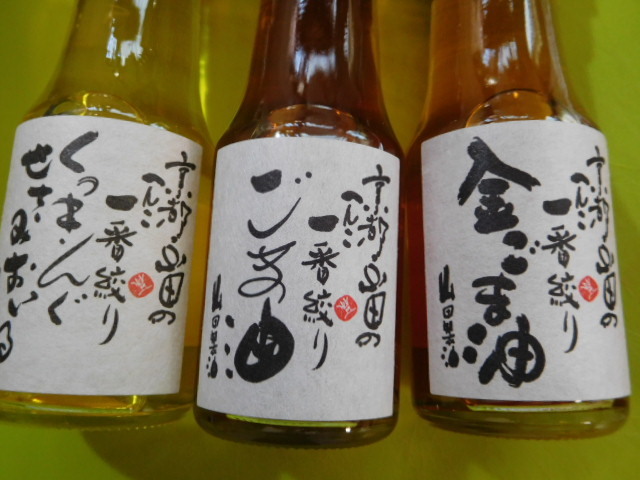 京都山田の
へんこ
一番絞り
くっきんぐ
せさみおいる
京都山田の
へんこ
一番絞り
ごま油
山田製油
京都山田の
へんこ
一番絞り
金ごま油
山田製油